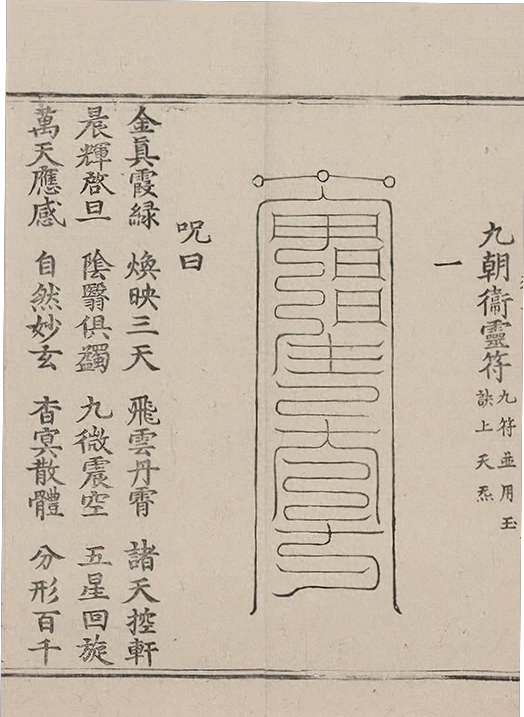 九朝衞靈符 九符並用玉
訣上天炁
一
呪曰
金眞霞緑 煥映三天 飛雲丹霄 諸天控軒
晨輝啓旦 陰翳俱蠲 九微震空 五星回旋
萬天應感 自然妙玄 杳冥散體 分形百千